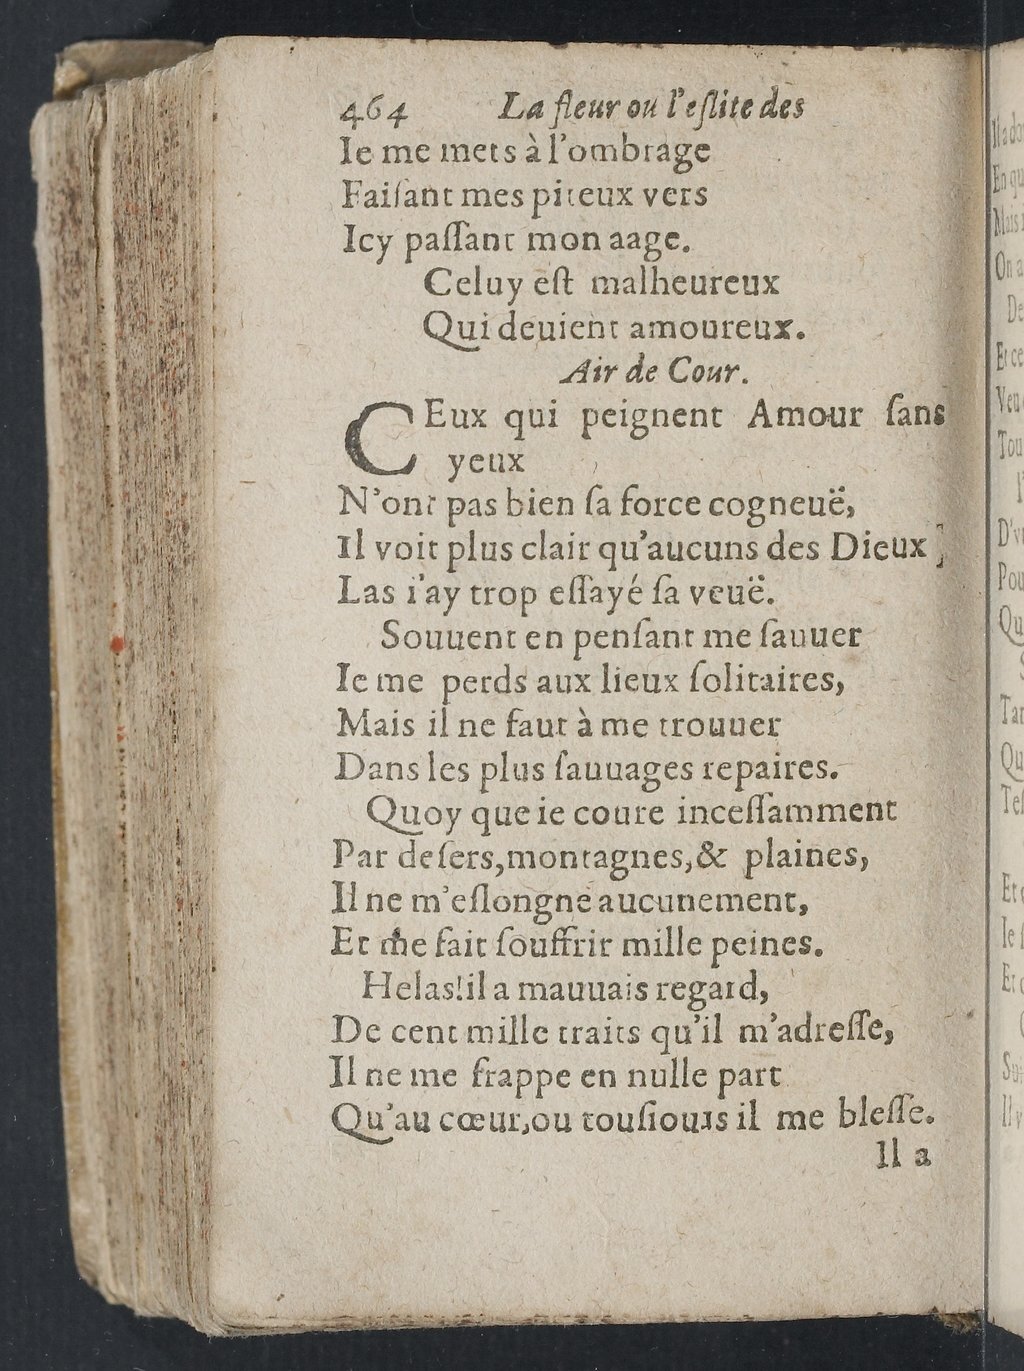 464 La fleur ou l'eſlite des
Ie me mets à l'ombrage
Faiſant mes piteux vers
Icy paſſant mon aage.
Celuy eſt malheureux
Qui deuient amoureux.
Air de Cour.
CEux qui peignent Amour ſans
yeux
N'ont pas bien ſa force cogneuë,
Il voit plus clair qu'aucuns des Dieux
Las i'ay trop eſſayé ſa veuë.
Souuent en penſant me ſauuer
Ie me perds aux lieux ſolitaires,
Mais il ne faut à me trouuer
Dans les plus ſauuages repaires.
Quoy que ie coure inceſſamment
Par deſers, montagnes, & plaines,
Il ne m'eſlongne aucunement,
Et me fait ſouffrir mille peines.
Helas! il a mauuais regard,
De cent mille traits qu'il m'adreſſe,
Il ne me frappe en nulle part
Qu'au cœur, ou touſiours il me bleſſe.
Il a